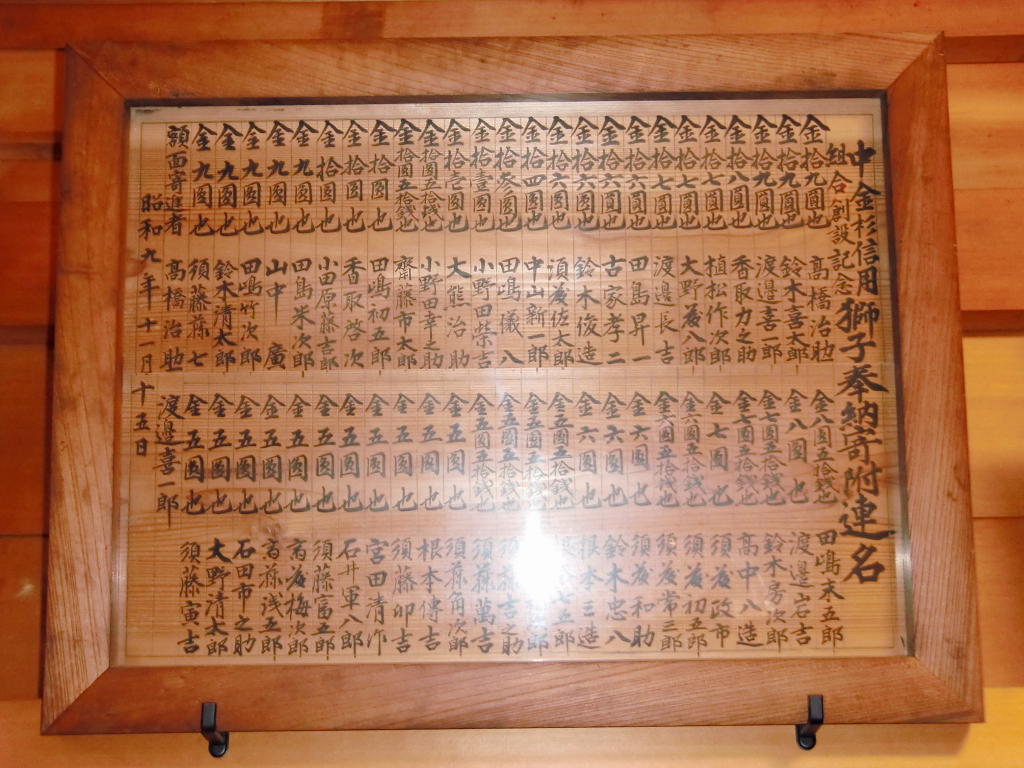 中金杉信用獅子奉納寄附連名
組合創設記念
金拾九圓也 髙橋治助
金拾九圓也 鈴木喜太郎
金拾九圓也 渡邉喜一郎
金拾八圓也 香取力之助
金拾七圓也 植松作次郎
金拾七圓也 大野藤八郎
金拾七圓也 渡邉長吉
金拾六圓也 田島昇一
金拾六圓也 古家孝二
金拾六圓也 鈴木俊造
金拾六圓也 須藤佐太郎
金拾四圓也 中山新一郎
金拾参圓也 田嶋儀八
金拾壹圓也 小野田柴吉
金拾壱圓也 大熊治助
金拾圓五拾銭也 小野田幸之助
金拾圓五拾銭也 齋藤市太郎
金拾圓也 田嶋初五郎
金拾圓也 香取啓次
金拾圓也 小田原藤吉郎
金九圓也 田島米次郎
金九圓也 山中廣
金九圓也 田嶋竹次郎
金九圓也 鈴木清太郎
金九圓也 須藤孫七
額面寄進者 髙橋治助
渡邉喜一郎
昭和九年十一月十五日
金八圓五拾銭也 田嶋末五郎
金八圓也 渡邉岩吉
金七圓五拾銭也 鈴木房次郎
金七圓五拾銭也 髙中八造
金七圓也 須藤政市
金六圓五拾銭也 須藤初五郎
金六圓五拾銭也 須藤常三郎
金六圓也 須藤和助
金六圓也 鈴木忠八
金六圓也 根本三造
金五圓五拾銭也 七五郎
金五圓五拾銭也
金五圓五拾銭也 須藤吉之助
金五圓五拾銭也 須藤萬吉
金五圓也 須藤角次郎
金五圓也 根本傳吉
金五圓也 須藤卯吉
金五圓也 宮田清作
金五圓也 石井軍八郎
金五圓也 須藤富五郎
金五圓也 斉藤梅次郎
金五圓也 斉藤浅五郎
金五圓也 石田市之助
金五圓也 大野清太郎
金五圓也 須藤寅吉